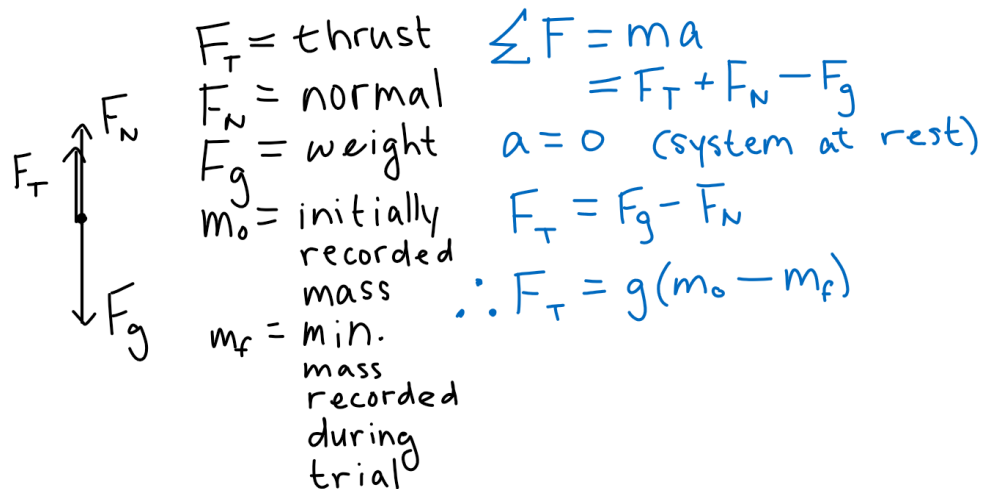 F_N
F_T
F_g
F_T = thrust
F_N = normal
F_g = weight
m_o = initially
recorded
mass
m_f = min.
mass
recorded
during
trial
ΣF = ma
= F_T + F_N - F_g
a = 0 (system at rest)
F_T = F_g - F_N
∴ F_T = g(m_o - m_f)